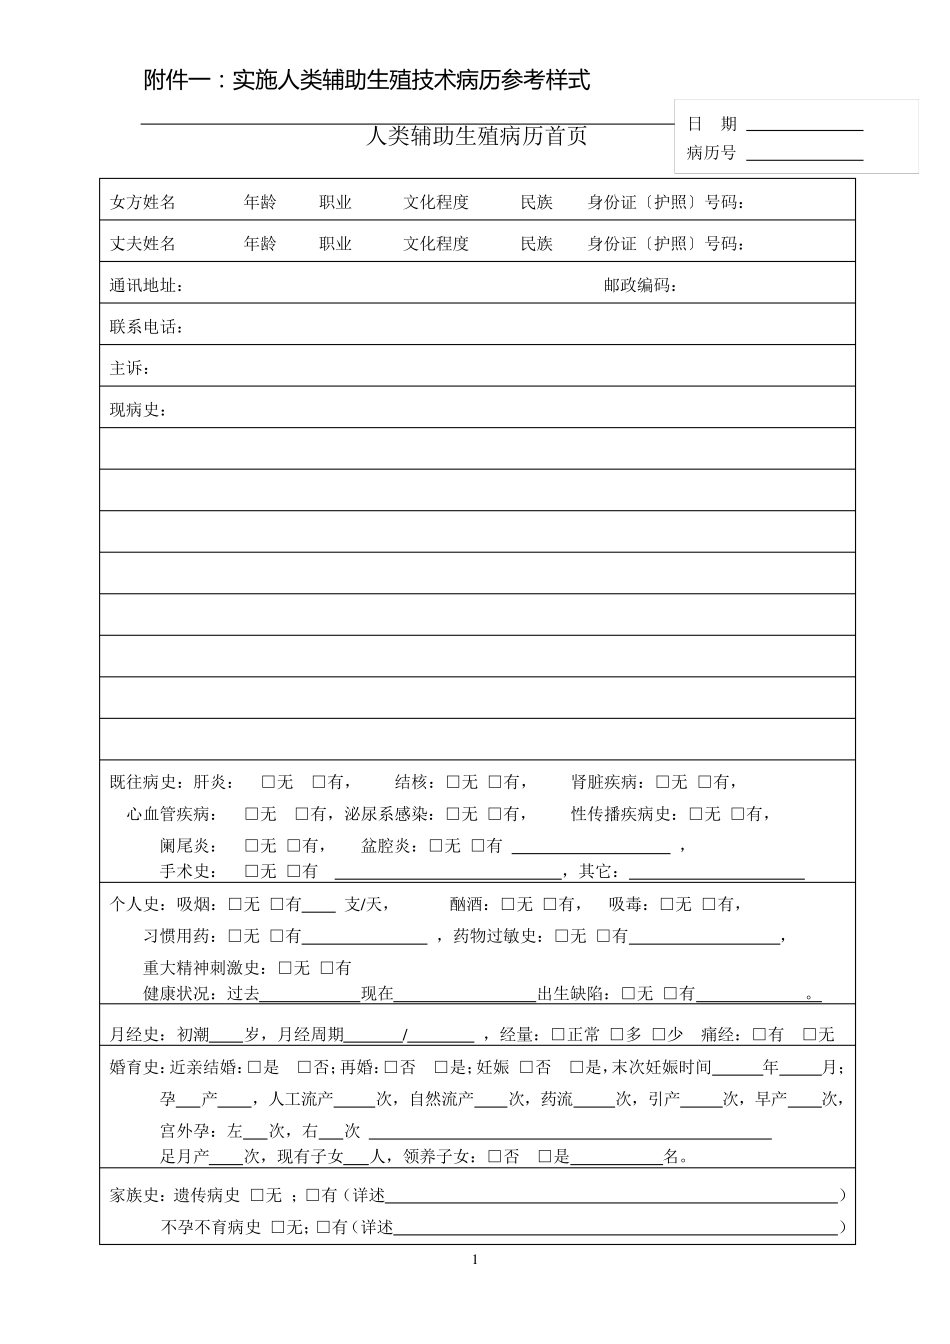 附件一：实施人类辅助生殖技术病历参考样式
人类辅助生殖病历首页
日 期
病历号
女方姓名 年龄 职业 文化程度 民族 身份证〔护照〕号码：
丈夫姓名 年龄 职业 文化程度 民族 身份证〔护照〕号码：
通讯地址： 邮政编码：
联系电话：
主诉：
现病史：
既往病史：肝炎： □无 □有， 结核：□无 □有， 肾脏疾病：□无 □有，
心血管疾病： □无 □有，泌尿系感染：□无 □有， 性传播疾病史：□无 □有，
阑尾炎： □无 □有， 盆腔炎：□无 □有 ，
手术史： □无 □有 ，其它：
个人史：吸烟：□无 □有 支/天， 酗酒：□无 □有， 吸毒：□无 □有，
习惯用药：□无 □有 ，药物过敏史：□无 □有 ，
重大精神刺激史：□无 □有
健康状况：过去 现在 出生缺陷：□无 □有 。
月经史：初潮 岁，月经周期 / ，经量：□正常 □多 □少 痛经：□有 □无
婚育史：近亲结婚：□是 □否；再婚：□否 □是；妊娠 □否 □是，末次妊娠时间 年 月；
孕 产 ，人工流产 次，自然流产 次，药流 次，引产 次，早产 次，
宫外孕：左 次，右 次
足月产 次，现有子女 人，领养子女：□否 □是 名。
家族史：遗传病史 □无 ；□有（详述 ）
不孕不育病史 □无；□有（详述 ）
1